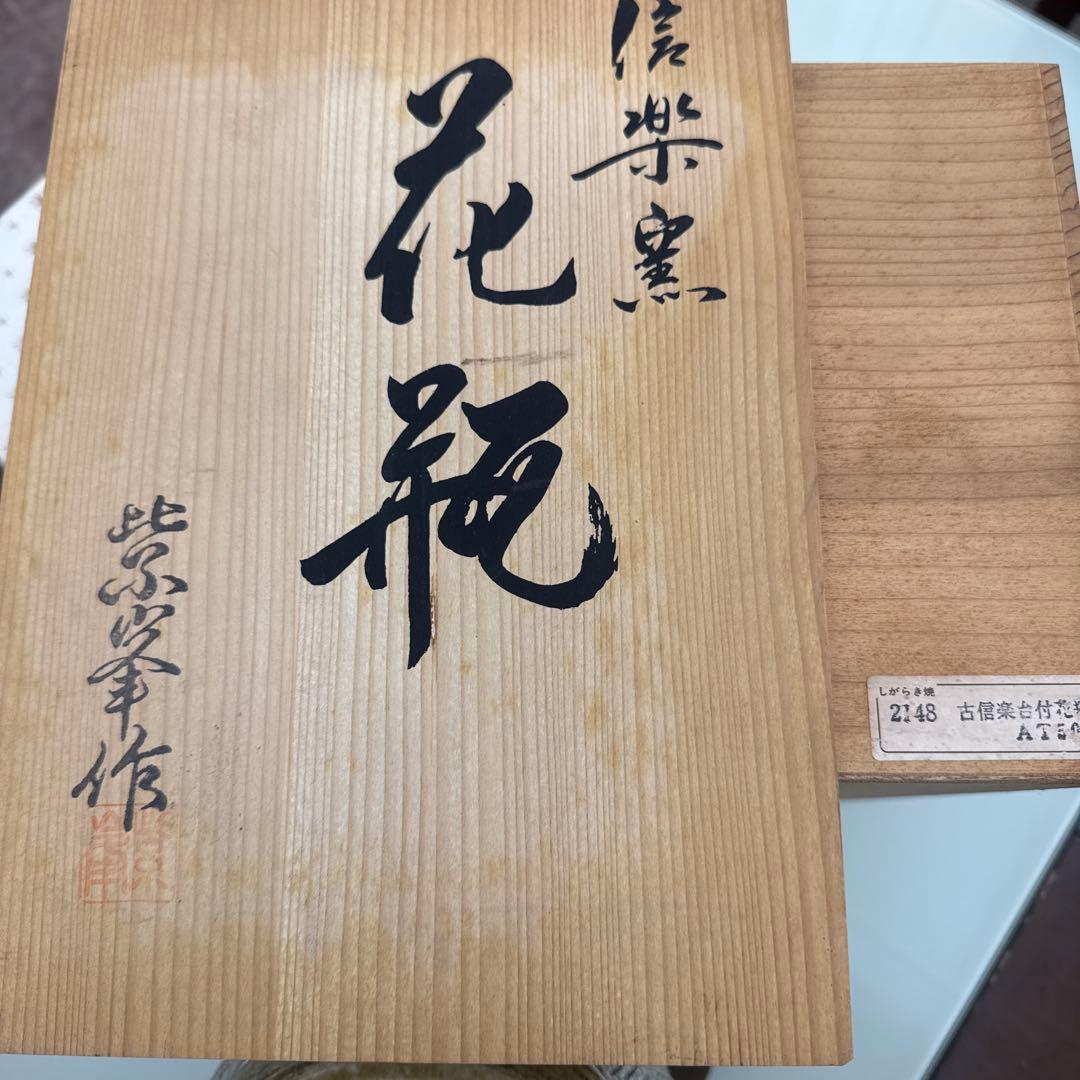 信楽窯
花瓶
紫峯作
紫峯
しがらき焼
2148 古信楽台付花瓶
AT50